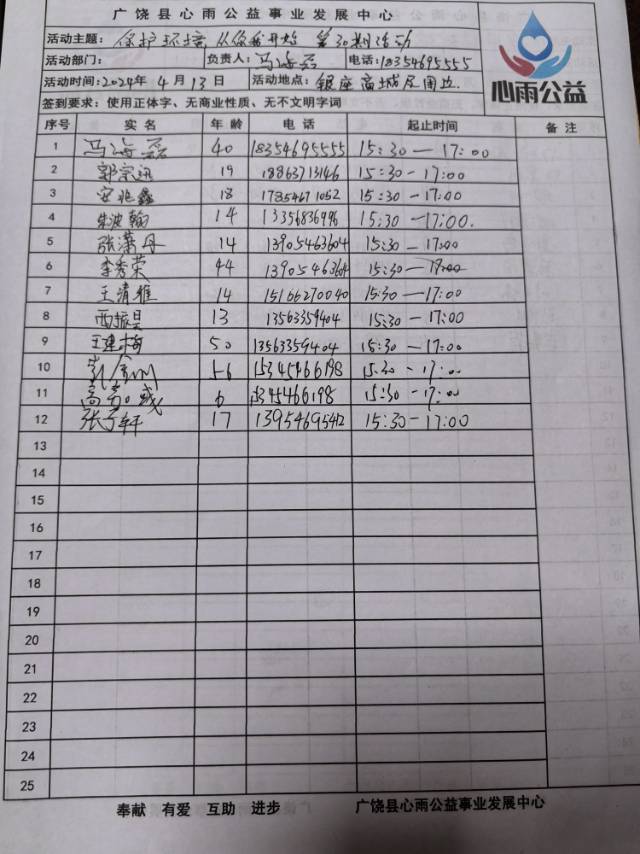 广饶县心雨公益事业发展中心
活动主题：保护环境 从你我开始 第30期活动
活动部门： 负责人：马海磊 电话：18354695555
活动时间：2024年4月13日 活动地点：银座商城及周边.
签到要求：使用正体字、无商业性质、无不文明字词
心雨公益
序号 实名 年龄 电话 起止时间 备注
1 马海磊 40 18354695555 15:30—17:00
2 郭宗迅 19 18863713146 15:30-17:00
3 安兆鑫 18 17854671052 15:30-17:00
4 朱波翰 14 13356836996 15:30-17:00.
5 张潇丹 14 13905463604 15:30-17:00
6 李秀荣 44 13905463604 15:30-17:00
7 王清雅 14 15166270040 15:30-17:00
8 西振昊 13 13563359404 15:30-17:00
9 王建梅 50 13563359404 15:30-17:00
10 56 15345466198 15:30-17:00
11 6 15345466198 15:30-17:00
12 张子轩 17 13954695412 15:30-17:00
13
14
15
16
17
18
19
20
21
22
23
24
25
奉献 有爱 互助 进步 广饶县心雨公益事业发展中心